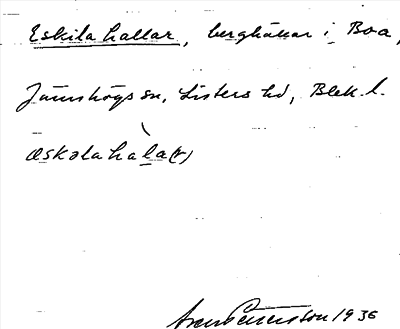 Eskila hallar, berghällar i Boa,
Jämshögs sn, Listers hd, Blek. l.
æskəlahala(r)
Pettersson 1936